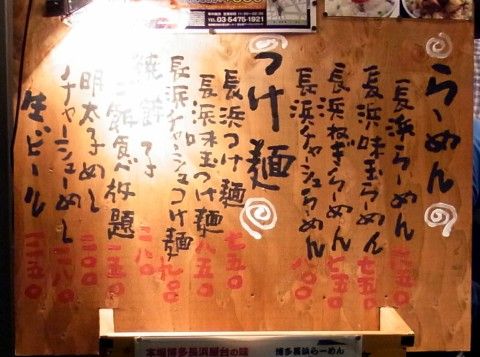 03-5475-1921
らーめん
長浜らーめん 六五〇
長浜味玉らーめん 七五〇
長浜ねぎらーめん 七五〇
長浜チャーシューらーめん 八〇〇
つけ麺
長浜つけ麺 七五〇
長浜味玉つけ麺 八五〇
長浜チャーシュつけ麺 九〇〇
焼餃子 三八〇
ご飯食べ放題 一五〇
明太子めし 三〇〇
チャーシューめし 三八〇
生ビール
本場博多長浜屋台の味
博多長浜らーめん